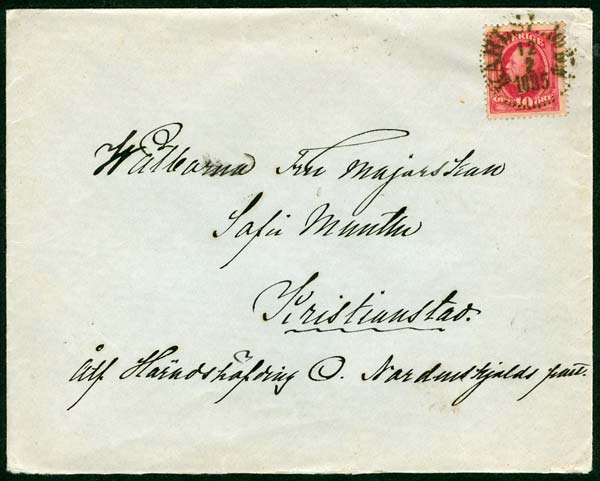 SVERIGE
12
2
1895
10 ÖRE
Wälborna Fru Majorskan
Sofie Munthe
Kristianstad.
Häradshöfding O. Nordenskjölds